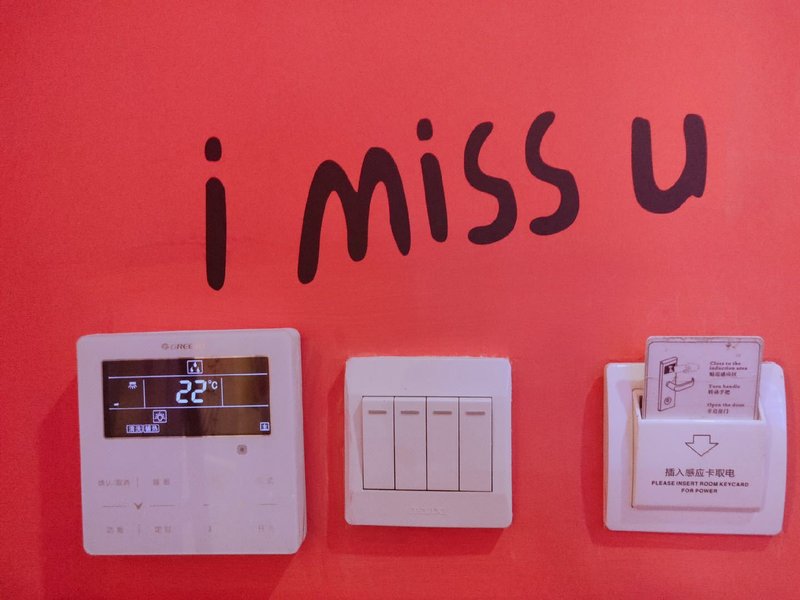 i miss u
GREE
22°C
Close to the
induction area
Turn handle
转动手把
Open the door
插入感应卡取电
PLEASE INSERT ROOM KEYCARD
FOR POWER